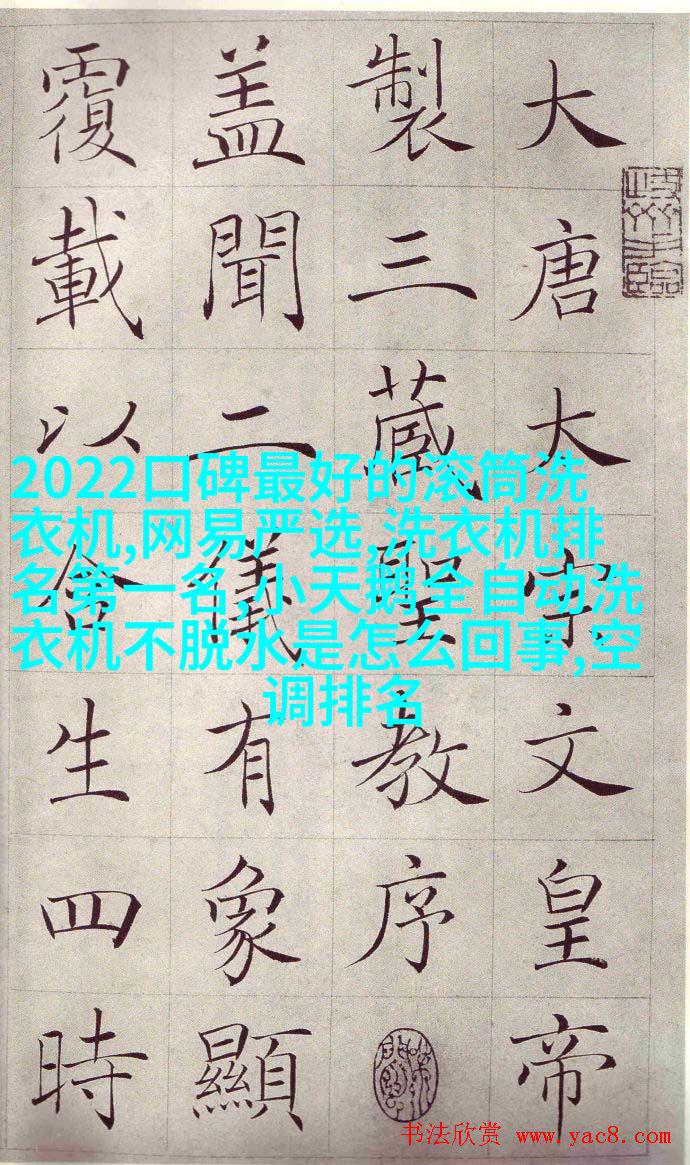 大唐大宗文皇帝
製三蔵聖教序
盖聞二儀有象顯
覆載以含生四時
2022口碑最好的滚筒洗
衣机,网易严选,洗衣机排
名第一名,小天鹅全自动洗
衣机不脱水是怎么回事,空
调排名
书法欣赏 www.yac8.com